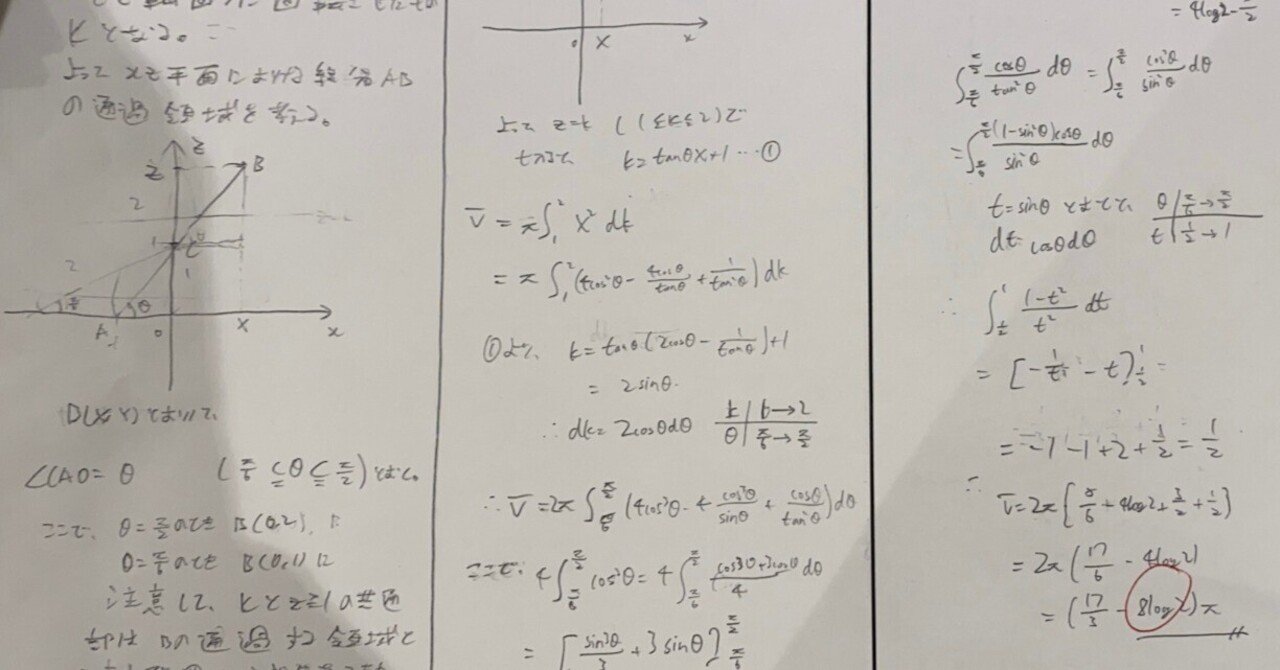 Kとなる。
よって xz平面における線分AB
の通過領域を考える。
z
2
B
2
1
2
1
θ
A
0
X
x
∠CAO = θ (π/6 ≦ θ ≦ π/2) とおく。
ここで、θ = π/2 のとき B(0,2)、
θ = π/6 のとき B(0,1) に
注意して、Kとz≧1の共通
部分は Bの通過する領域と
0 X x
よって z=k (1≦k≦2)で
k = tanθX+1 … ①
V = π∫₁² X² dk
= π∫₁² (4cos²θ - 4cosθ/tanθ + 1/tan²θ) dk
①より、 k = tanθ(2cosθ - 1/tanθ)+1
= 2sinθ.
∴ dk = 2cosθdθ
k | 1→2
θ | π/6→π/2
∴ V = 2π∫_{π/6}^{π/2} (4cos³θ - 4 cos³θ/sinθ + cosθ/tan²θ) dθ
ここで、 4∫_{π/6}^{π/2} cos³θ = 4∫_{π/6}^{π/2} (cos3θ+3cosθ)/4 dθ
= [sin3θ/3 + 3sinθ]_{π/6}^{π/2}
= 4log2 - 3/2
∫_{π/6}^{π/2} cosθ/tan²θ dθ = ∫_{π/6}^{π/2} cos³θ/sin²θ dθ
= ∫_{π/6}^{π/2} (1-sin²θ)cosθ/sin²θ dθ
t = sinθ とおくと、
θ | π/6→π/2
dt = cosθdθ
t | 1/2→1
∴ ∫_{1/2}^{1} (1-t²)/t² dt
= [-1/t - t]_{1/2}^{1}
= -1 -1 +2 + 1/2 = 1/2
∴
V = 2π{5/6 + 4log2 + 3/2 + 1/2}
= 2π(17/6 - 4log2)
= (17/3 - 8log2)π